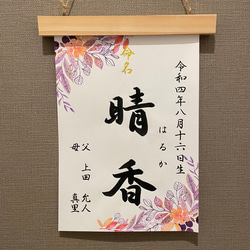 令和四年八月十六日生
命名
晴香
はるか
父 上田 允人
母 真里